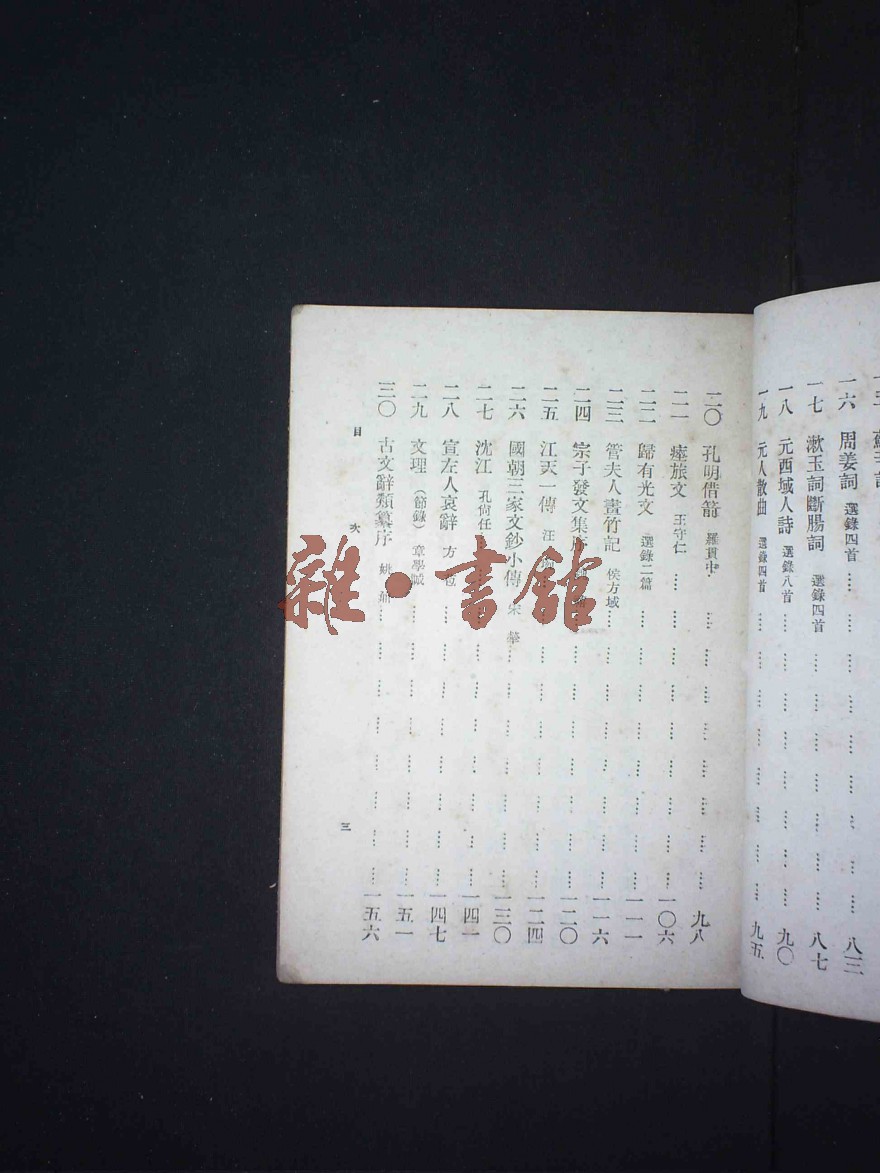 一六 周姜詞 選錄四首 八三
一七 漱玉詞斷腸詞 選錄四首 八七
一八 元西域人詩 選錄八首 九〇
一九 元人散曲 選錄四首 九五
二〇 孔明借箭 羅貫中 九八
二一 瘞旅文 王守仁 一〇六
二二 歸有光文 選錄二篇 一一一
二三 管夫人畫竹記 侯方域 一一六
二四 宗子發文集序 一二〇
二五 江天一傳 汪 一二四
二六 國朝三家文鈔小傳 宋犖 一三〇
二七 沈江 孔尙任 一四一
二八 宣左人哀辭 方苞 一四七
二九 文理（節錄） 章學誠 一五一
三〇 古文辭類纂序 姚鼐 一五六
目次
三
雜·書館